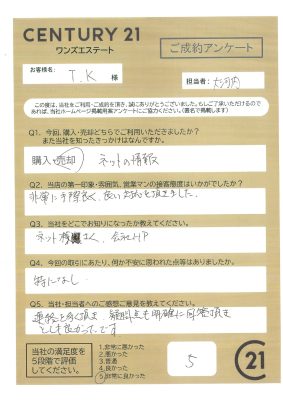 CENTURY 21
ワンズエステート
ご成約アンケート
お客様名:
T.K 様
担当者:
この度は、当社をご利用・ご成約を頂き、誠にありがとうございました。もしご了承いただけるので
あれば、当社ホームページ掲載用アンケートにご協力ください。(匿名で掲載します)
Q1. 今回、購入・売却どちらでご利用いただきましたか?
また当社を知ったきっかけはなんですか。
購入・売却 ネットの情報
Q2. 当店の第一印象・雰囲気、営業マンの接客態度はいかがでしたか?
非常に手際良く、良い対応を頂きました。
Q3. 当社をどこでお知りになったか教えてください。
ネット 会社HP
Q4. 今回の取引にあたり、何か不安に思われた点等はありましたか。
特になし
Q5. 当社・担当者へのご感想ご意見を教えてください。
連絡も良く頂き 疑問点も明確に回答頂き
とても良かったです
当社の満足度を
5段階で評価
してください。
1.非常に悪かった
2.悪かった
3.普通
4.良かった
5.非常に良かった
5
C21